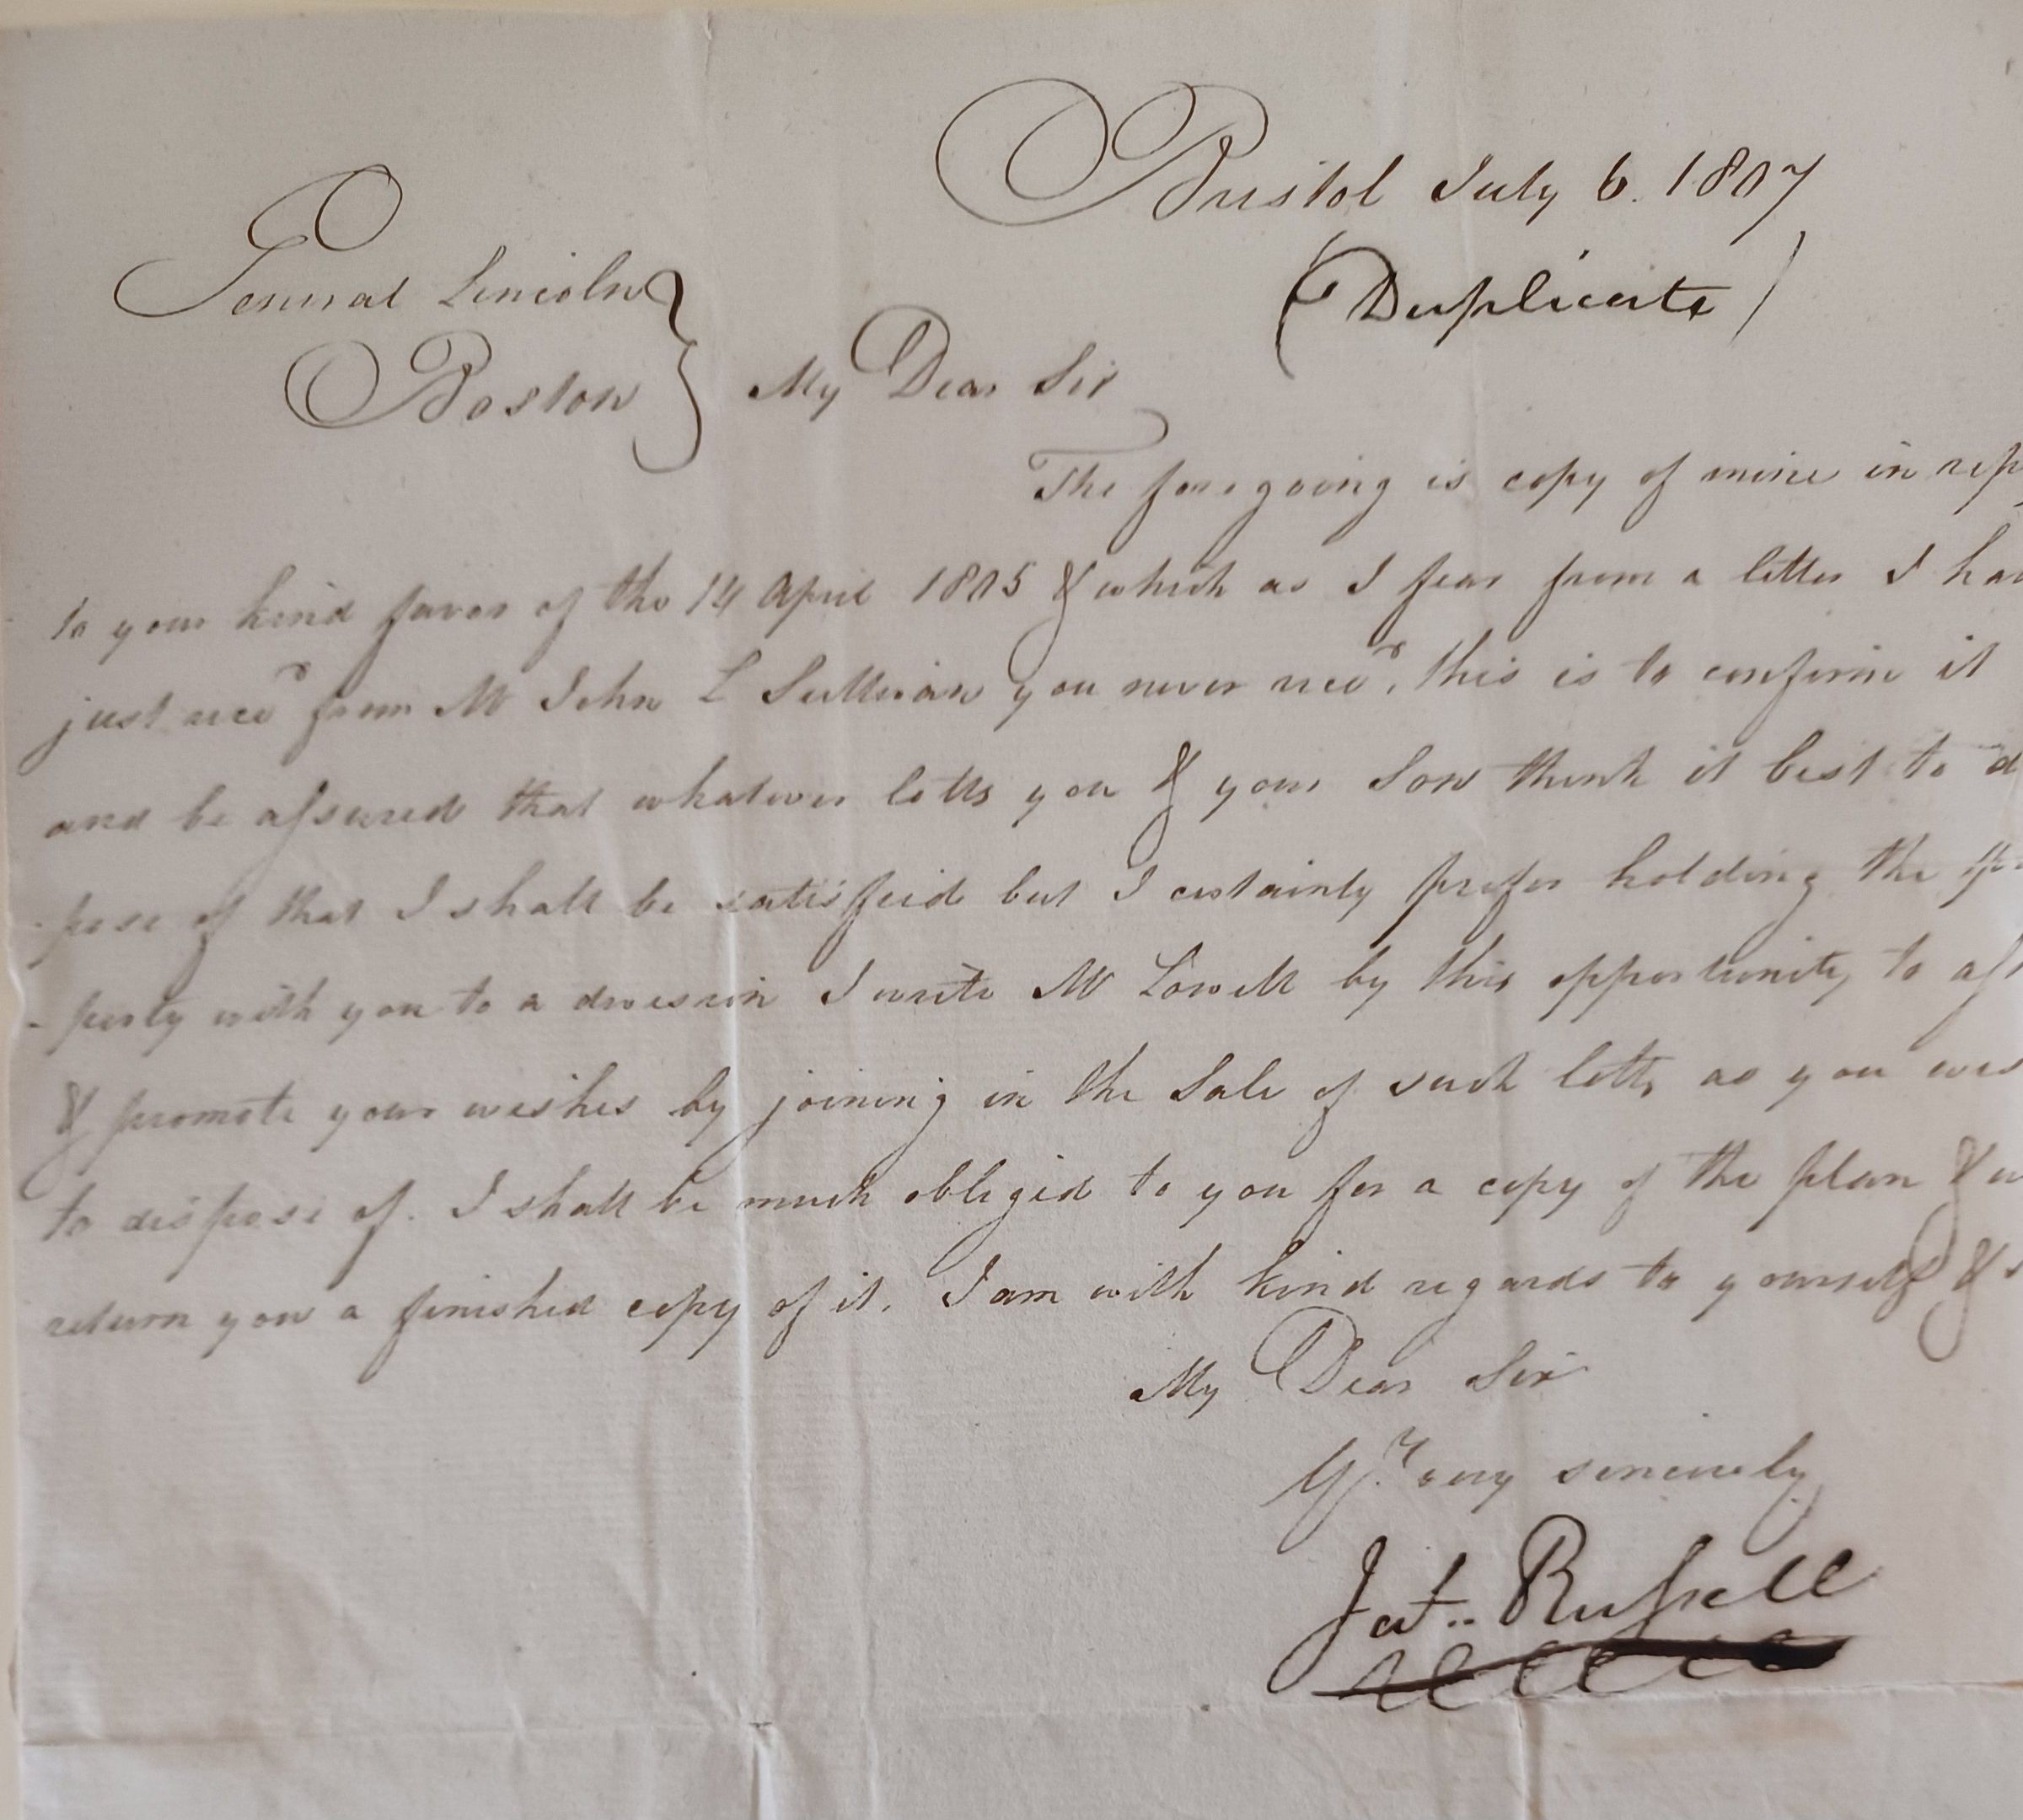 Bristol July 6. 1807
(Duplicate)
General Lincoln
Boston } My Dear Sir
The foregoing is copy of mine in rep
to your kind favor of the 14 April 1805 & which as I fear from a letter I hav
just recd from Mr John L Sullivan you never recd, this is to confirm it
and be assured that whatever lotts you & your Son think it best to d
-pose of that I shall be satisfied but I certainly prefer holding the
-perty with you to a division I write Mr Lowell by this opportunity to ass
& promote your wishes by joining in the Sale of such lotts as you wis
to dispose of. I shall be much obliged to you for a copy of the plan & w
return you a finished copy of it. I am with kind regards to yourself &
My Dear Sir
Yr. very sincerely
Jat.. Russell